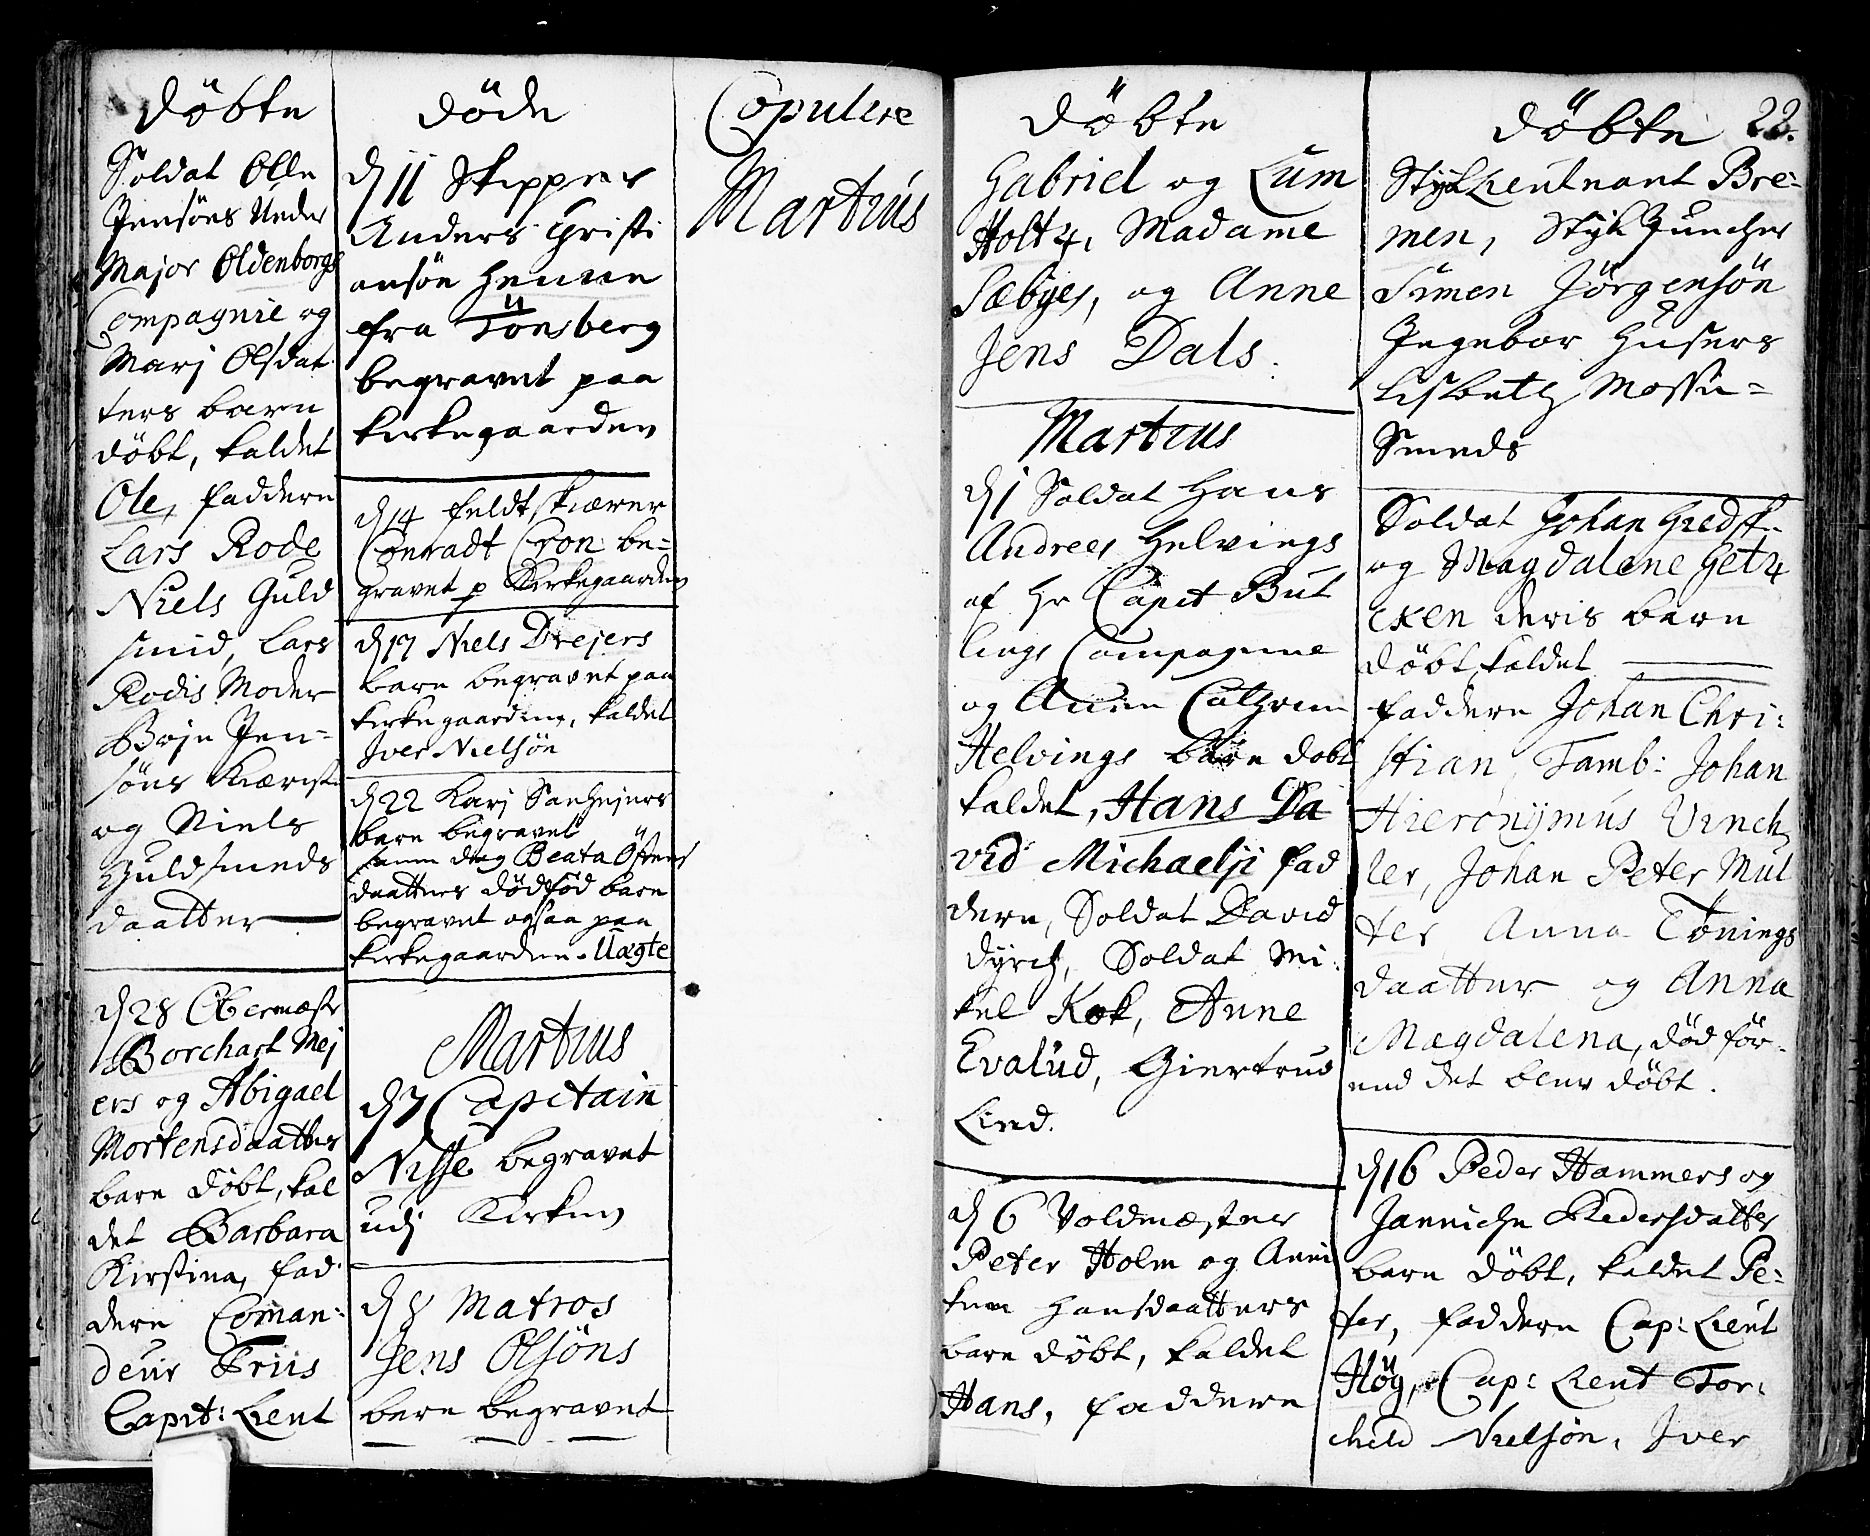 Döbte
Soldat Olle
Jensöns Under
Major Oldenborgs
Compagnie og
Marj Olsdat
ters barn
döbt, kaldet
Ole, faddere
Lars Rode
Niels Guld
smid, Lars
Rodis Moder
Boje Jen-
söns Kiærist
og Niels
Guldsmeds
daatter
d 28 Obermæstr
Borchart Mej
ers og Abigael
Mortensdaatter
barn döbt, kal
det Barbara
Kirstina, fad
dere Coman-
deur Friis
Capit: Lieut
Döde
d 11 Skipper
Anders Christi
ansön
fra Tönsberg
begravet paa
kirkegaarden
d 14 feldtskiærer
Conradt Cron be-
gravet p Kirkegaarden
d 17 Niels Drejers
barn begravet paa
kirkegaarden, kaldet
Iver Nielsön
d 22 Karj
barn begravet
samme dag Beata Östens
daatters dödföd barn
begravet ogsaa paa
kirkegaarden. Uægte
Martius
d 7 Capitain
Nisse begravet
udj Kirken
d 8 Matros
Jens Olsöns
barn begravet
Copulere
Martius
Döbte
Gabriel og Lum
Holtz, Madame
Sæbyes, og Anne
Jens Dals.
Martius
d 1 Soldat Hans
Andrees Helvings
af Hr Capit But
lings Compagnie
og Anne Cathrine
Helvings barn döbt
kaldet, Hans Da
vid Michaelji fad
dere, Soldat David
Dyrch, Soldat Mi-
kel Kok, Anne
Evalud, Giertrud
Lind.
d 6 Voldmester
Peter Holm og Anni
ken Hansdaatters
barn döbt, kaldet
Hans, faddere
Döbte 22.
StykLieutnant Bre-
men, Styk Juncher
Simen Jörgensön
Ingebor Husers
Lisbeth Messin-
Smeds
Soldat Johan
og Magdalene Getz
exen deris barn
döbt kaldet
faddere Johan Chri-
stian, Tamb: Johan
Hieronymus Vinch
ler, Johan Peter Mul
ler, Anna Tönings
daatter og Anna
Magdalena, död för-
end det blev döbt.
d 16 Peder Hammers og
Jannichn Pedersdatter
barn döbt, kaldet Pe-
ter, faddere Cap: Lieut
Hög, Cap: Lieut Tor-
child Nielsön, Iver